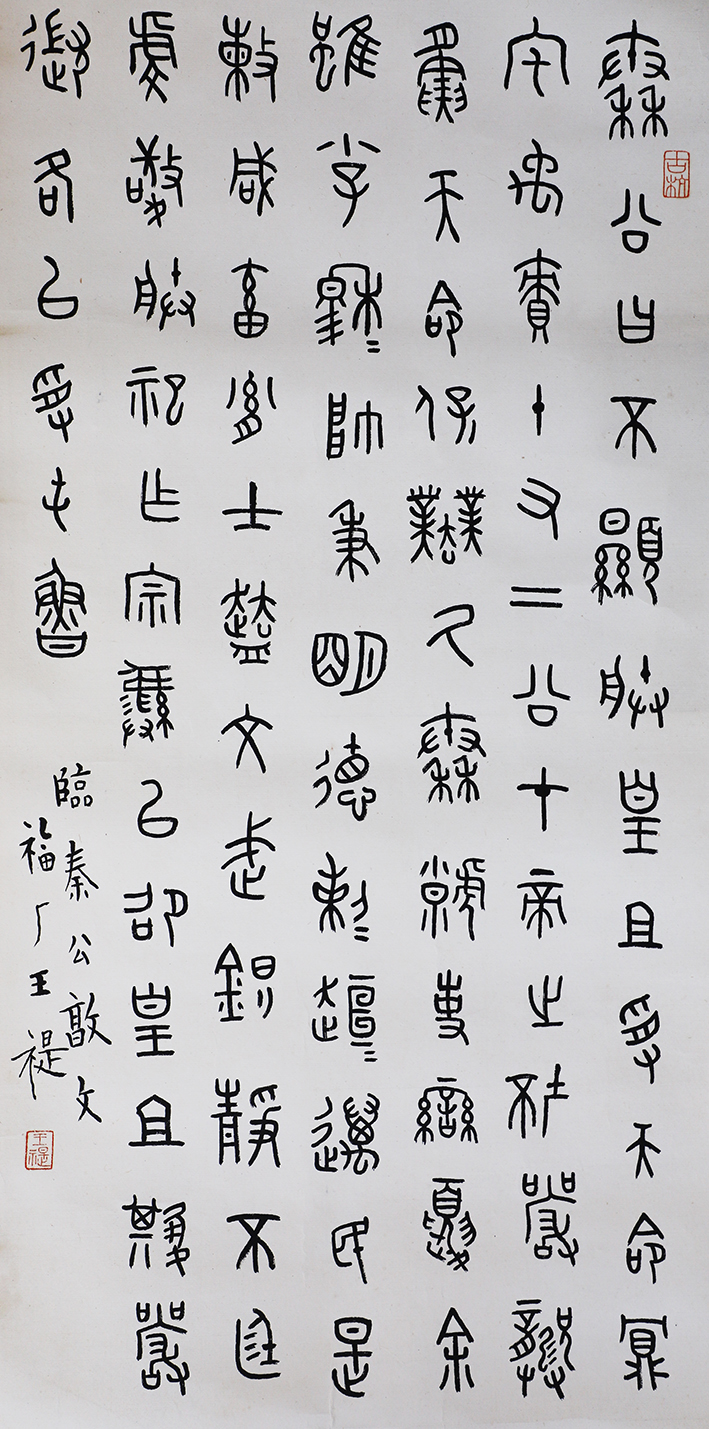 秦公曰不顯朕皇且受天命鼏
宅禹責十又二公十帝之坏嚴龏
夤天命保業厥秦虩事䜌夏余
雖小子穆=帥秉明德剌=趄=邁民是
敕咸畜胤士文武鋹靜不廷
虔敬朕祀乍宗彝以卲皇且其嚴
各以受屯魯
臨秦公敦文
福厂王禔
王禔
古杭